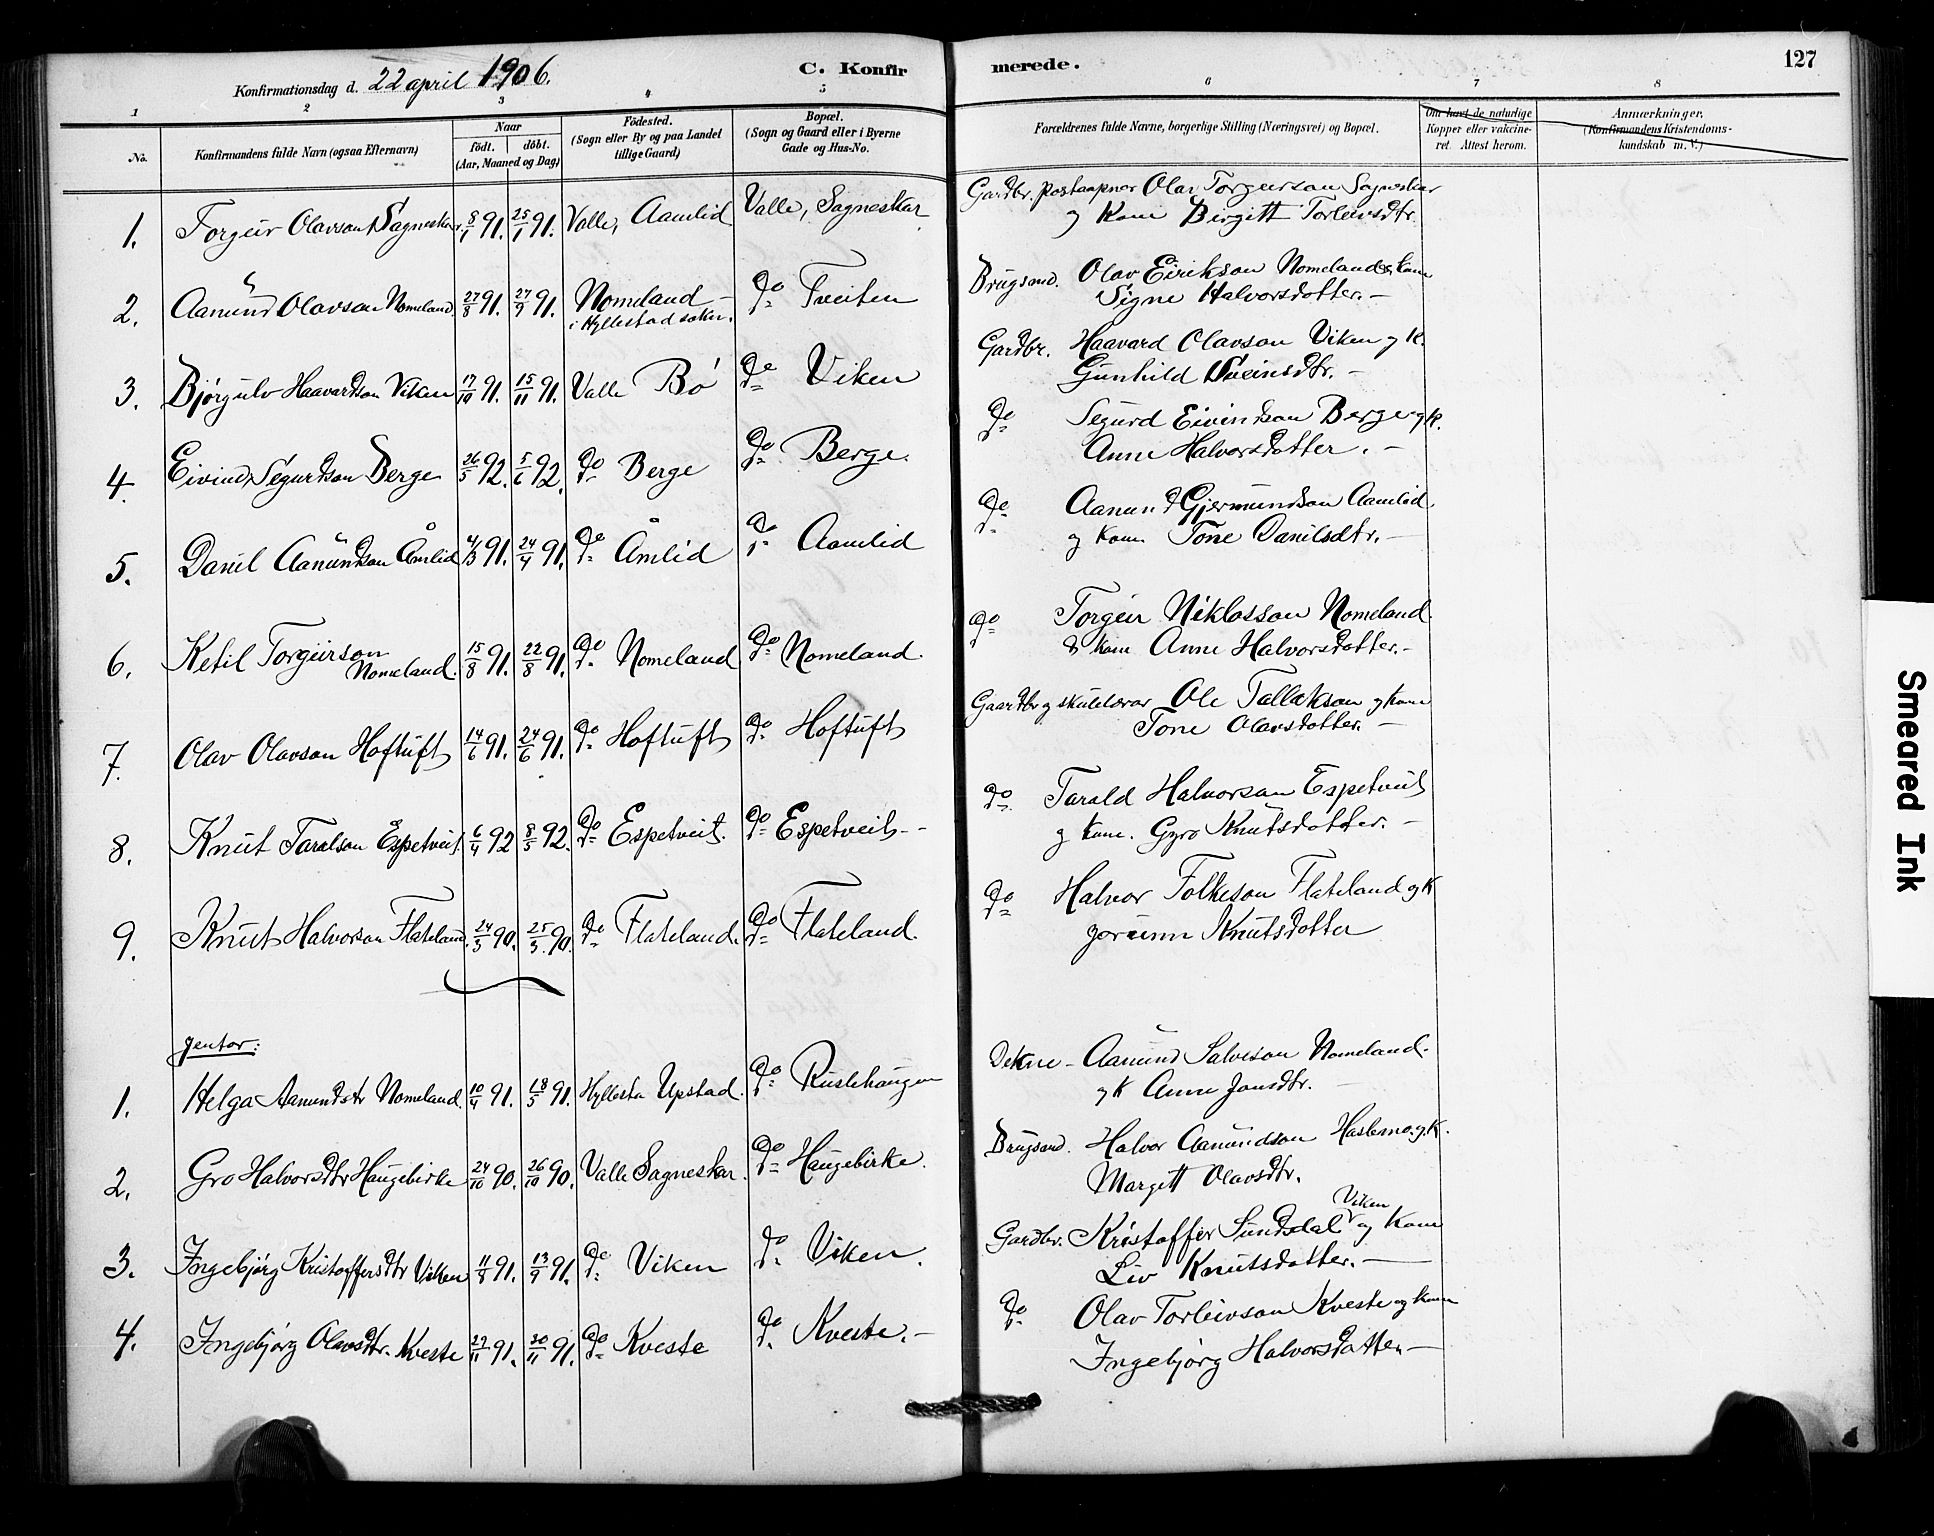 127
Konfirmationsdag d. 22 april 1906.
C. Konfirmerede.
1 2 3 4 5 6 7 8
No.
Konfirmandens fulde Navn (ogsaa Efternavn)
Naar
født. døbt.
(Aar, Maaned og Dag)
Fødested.
(Sogn eller By og paa Landet
tillige Gaard)
Bopæl.
(Sogn og Gaard eller i Byerne
Gade og Hus-No.
Forældrenes fulde Navne, borgerlige Stilling (Næringsvei) og Bopæl.
Om havt de naturlige
Kopper eller vakcine-
ret. Attest herom.
Anmærkninger.
(Konfirmandens Kristendoms-
kundskab m. V.)
1. Torgeir Olavson Sagneskar 8/1 91. 25/1 91. Valle, Aamlid Valle, Sagneskar Gardbr. postaapner Olav Torgeirson Sagneskar
og Kone Birgitt Torleivsdtr.
2. Aanund Olavson Nomeland. 27/8 91. 27/9 91. Nomeland - i Hyllestad soken. do Tveiten Brugsmd. Olav Eirikson Nomeland & Kone
Signe Halvorsdotter. -
3. Bjørgulv Haavardson Viken 17/10 91. 15/11 91. Valle Bø do Viken Gardbr. Haavard Olavson Viken og K.
Gunhild Sveinsdtr. -
4. Eivind Segurdson Berge 26/5 92. 5/6 92. do Berge do Berge. do Segurd Eivindson Berge og K.
Anne Halvorsdotter. -
5. Danil Aanundson Åmlid 4/3 91. 24/4 91. do Åmlid do Aamlid do Aanund Gjermundson Aamlid.
og Kone Tone Danilsdtr. -
6. Ketil Torgeirson
Nomeland. 15/8 91. 22/8 91. do Nomeland do Nomeland. do Torgeir Niklosson Nomeland.
& Kone Anne Halvorsdotter. -
7. Olav Olavson Hoftuft 14/6 91. 24/6 91. do Hoftuft do Hoftuft Gaardbr og skulelærar Ole Tallakson og Kone
Tone Olavsdotter. -
8. Knut Taralson Espetveit. 6/4 92 8/5 92. do Espetveit. do Espetveit - - do Tarald Halvorson Espetveit
og Kone. Gyro Knutsdotter. -
9. Knut Halvorson Flateland. 24/3 90. 25/3 90. do Flateland. do Flateland. do Halvor Folkeson Flateland og K
Jorunn Knutsdotter
Jentor:
1. Helga Aamundsdtr Nomeland. 10/4 91. 18/5 91. Hyllesta Upstad. do Ruslehaugen Aanund Salveson Nomeland.
og K Anne Jonsdtr. -
2. Gro Halvorsdtr Haugebirke 24/10 90. 26/10 90. Valle Sagneskar. do Haugebirke. Brugsmd. Halvor Aanundson Haslemo. og K.
Margitt Olavsdtr.
3. Ingebjørg Kristoffersdtr Viken 11/8 91. 13/9 91. do Viken do Viken. Gardbr. Kristoffer Sundsdal Viken og Kone
Liv Knutsdotter. -
4. Ingebjørg Olavsdtr. Kveste 22/11 91. 30/11 91. do Kveste do Kveste. - do Olav Torleivson Kveste og Kone
Ingebjørg Halvorsdotter -
Smeared Ink